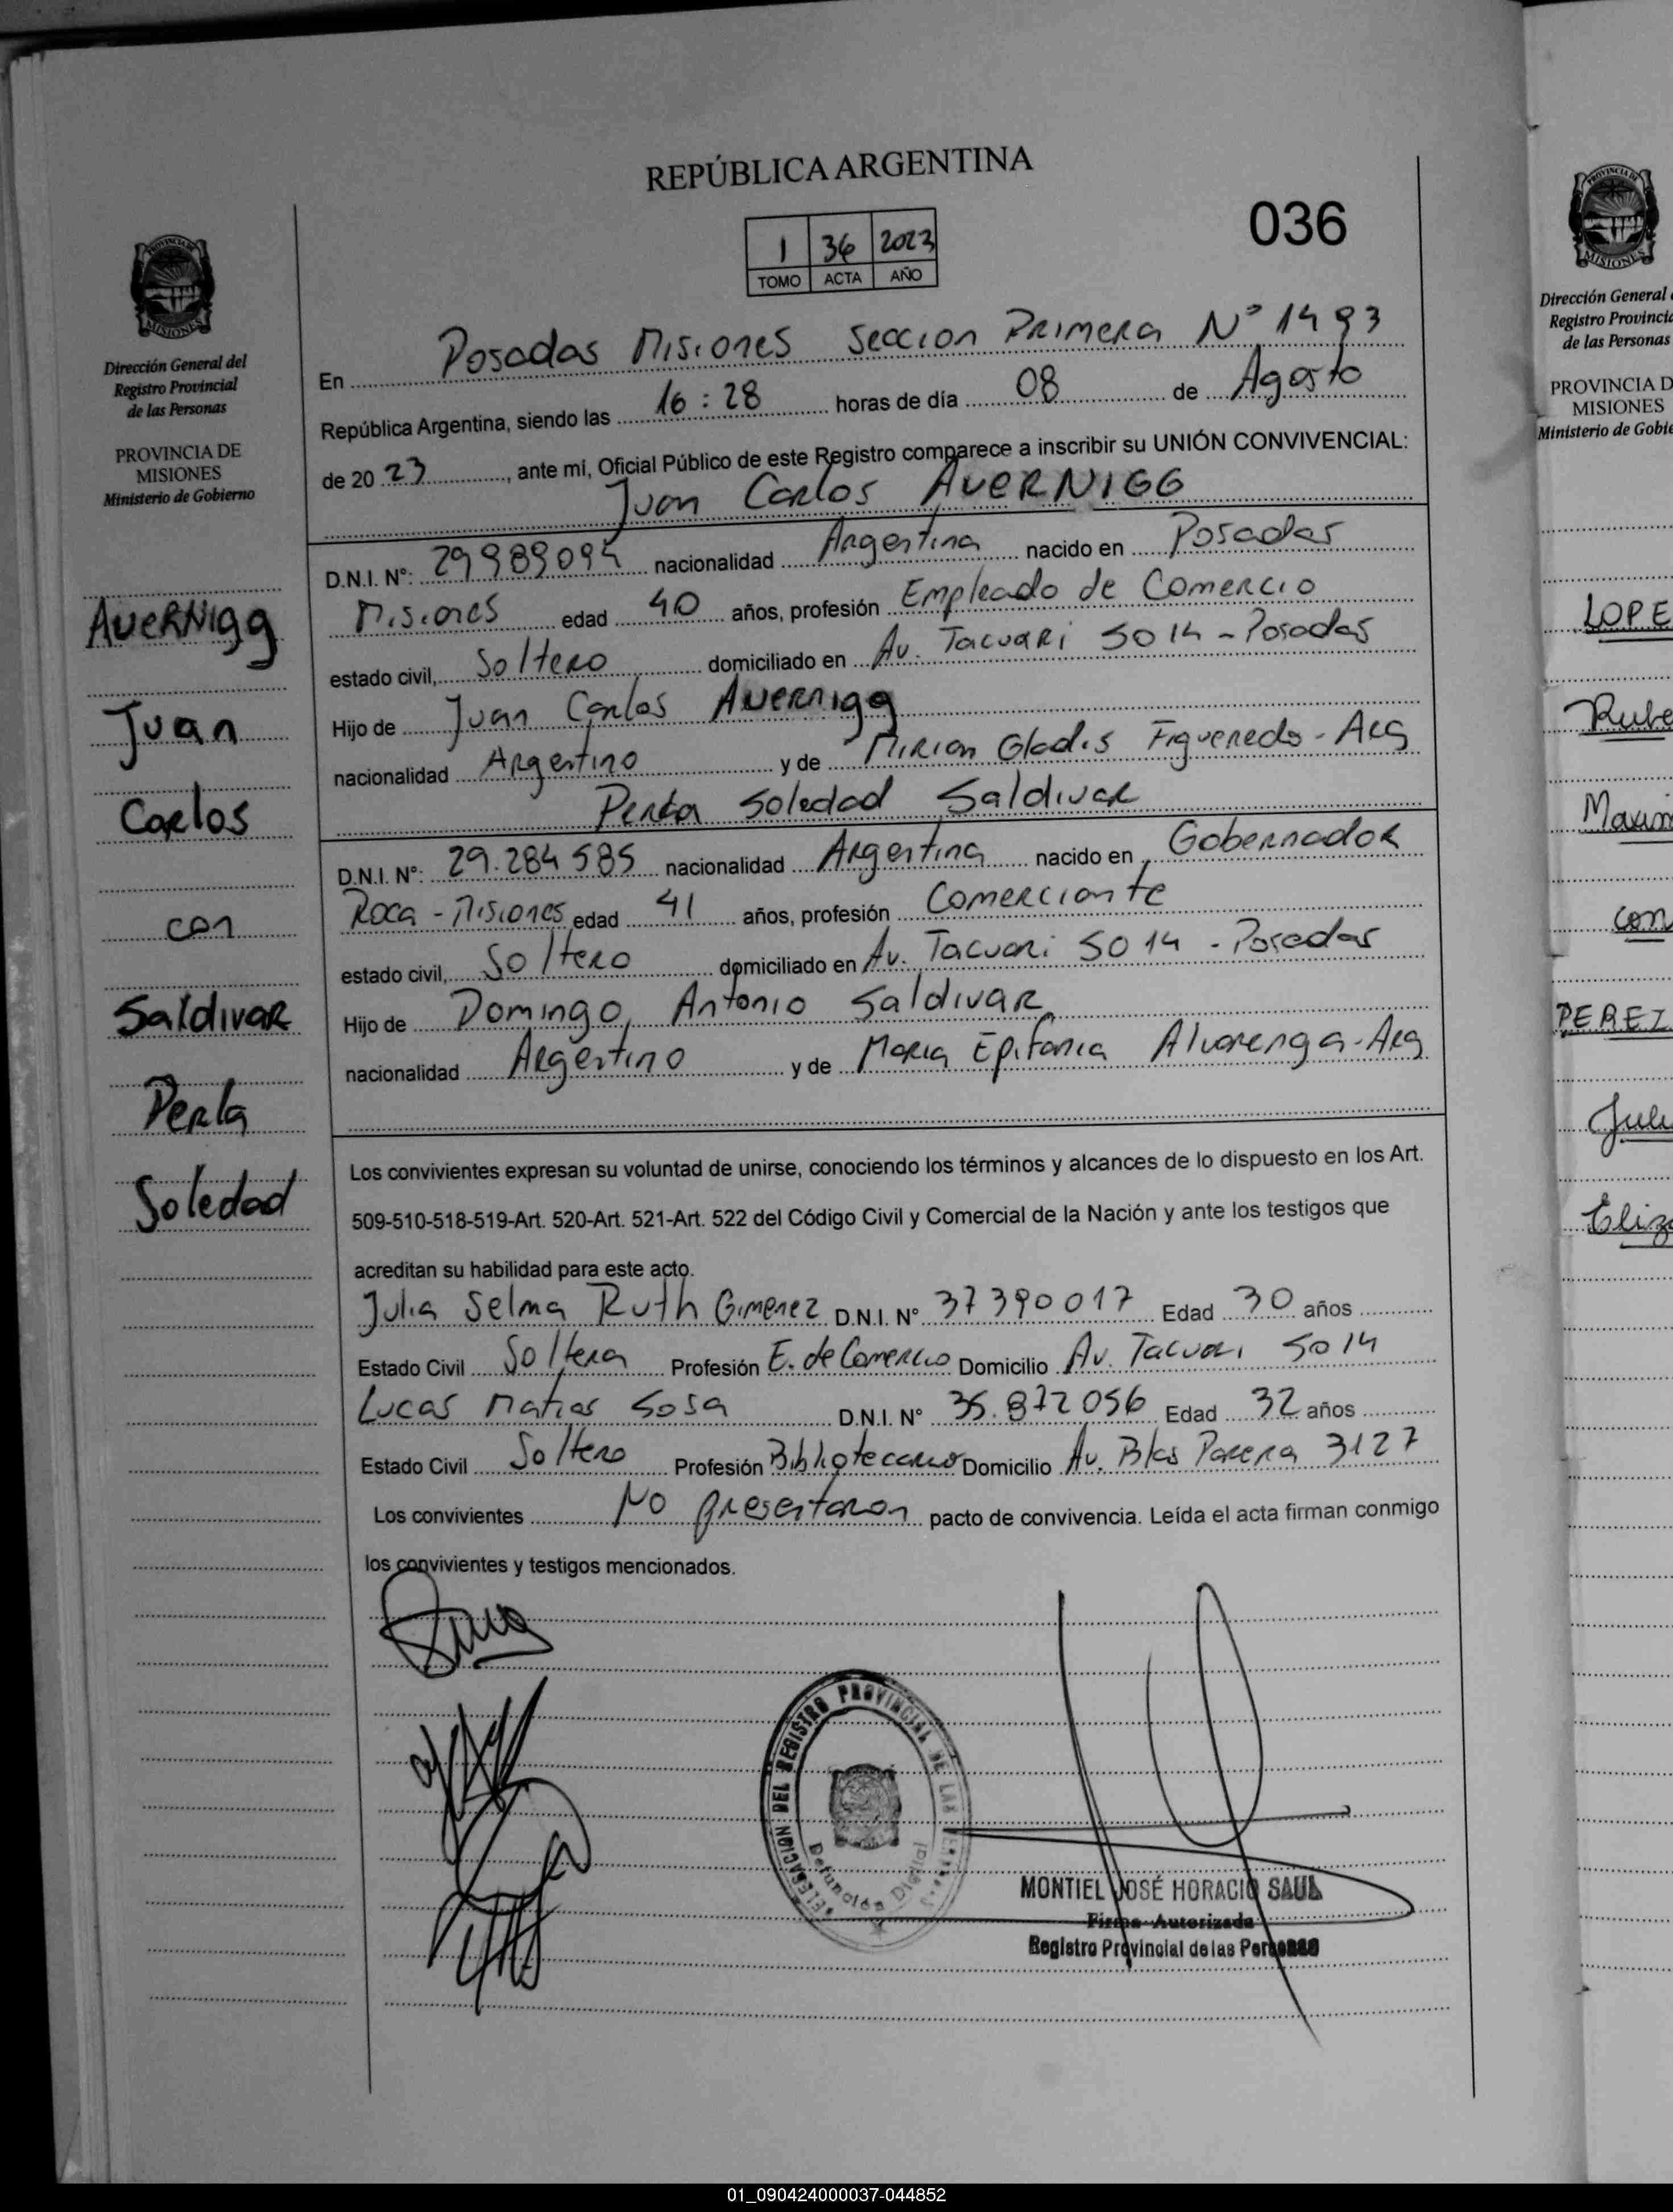 REPÚBLICA ARGENTINA
036
1 36 2023
TOMO ACTA AÑO
PROVINCIA DE MISIONES
Dirección General del
Registro Provincial
de las Personas
PROVINCIA DE
MISIONES
Ministerio de Gobierno
AVERNIGG
Juan
Carlos
con
Saldivar
Perla
Soledad
En Posadas Misiones Seccion Primera N° 1493
República Argentina, siendo las 16:28 horas de día 08 de Agosto
de 2023, ante mi, Oficial Público de este Registro comparece a inscribir su UNIÓN CONVIVENCIAL:
Juan Carlos AVERNIGG
D.N.I. Nº: 29989094 nacionalidad Argentina nacido en Posadas
Misiones edad 40 años, profesión Empleado de Comercio
estado civil, Soltero domiciliado en Av. Tacuari 5014 - Posadas
Hijo de Juan Carlos Avernigg
nacionalidad Argentino y de Mirian Gladis Figueredo - Arg
Perla Soledad Saldivar
D.N.I. Nº: 29.284585 nacionalidad Argentina nacido en Gobernador
Roca - Misiones edad 41 años, profesión Comerciante
estado civil, Soltero domiciliado en Av. Tacuari 5014 - Posadas
Hijo de Domingo Antonio Saldivar
nacionalidad Argentino y de Maria Epifania Alvarenga - Arg
Los convivientes expresan su voluntad de unirse, conociendo los términos y alcances de lo dispuesto en los Art.
509-510-518-519-Art. 520-Art. 521-Art. 522 del Código Civil y Comercial de la Nación y ante los testigos que
acreditan su habilidad para este acto.
Julia Selma Ruth Gimenez D.N.I. Nº 37390017 Edad 30 años
Estado Civil Soltera Profesión E. de Comercio Domicilio Av. Tacuari 5014
Lucas Matias Sosa D.N.I. Nº 35.872056 Edad 32 años
Estado Civil Soltero Profesión Bibliotecario Domicilio Av. Blas Parera 3127
Los convivientes No presentaron pacto de convivencia. Leída el acta firman conmigo
los convivientes y testigos mencionados.
DELEGACION DEL REGISTRO PROVINCIAL DE LAS
Defunción Digital
MONTIEL JOSÉ HORACIO SAUL
Firma Autorizada
Registro Provincial de las Personas
PROVINCIA DE MISIONES
Dirección General
Registro Provincia
de las Personas
PROVINCIA D
MISIONES
Ministerio de Gobie
LOPE
Rube
Maxim
con
PEREZ
Juli
Eliza
01_090424000037-044852